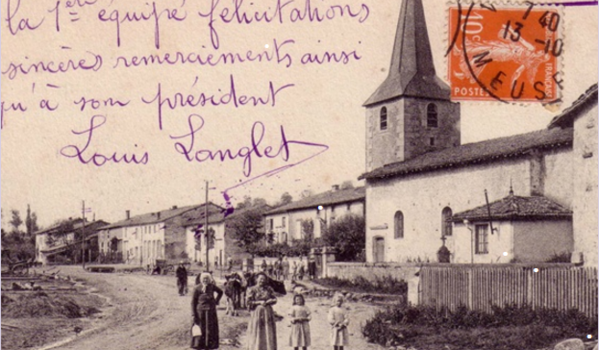 la 1ère équipe félicitations
sincères remerciements ainsi
qu'à som président
Louis Langlet
10c
POSTES
7 40
13-10
MEUSE